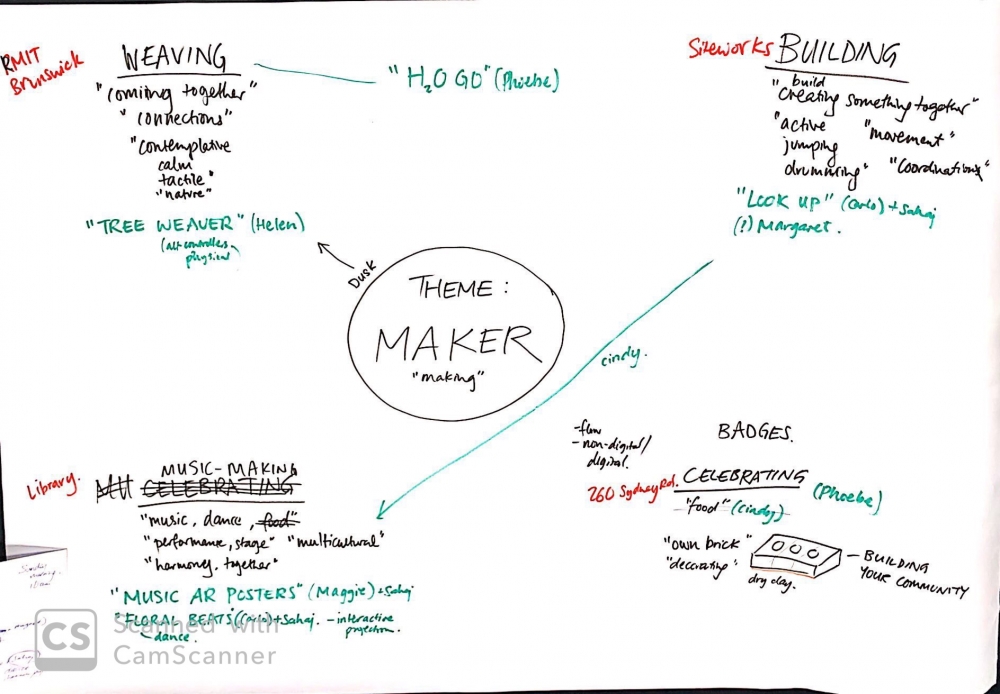 RMIT
Brunswick
WEAVING
"coming together"
"connections"
"contemplative
calm
tactile"
"nature"
"TREE WEAVER" (Helen)
(alt-controllers
physical
"H2O GO" (Phoebe)
Siteworks BUILDING
" build
creating something together"
"active
jumping
drumming"
"movement"
"coordination"
"LOOK UP" (Carlo) + Sahaj
(!) Margaret.
Dusk
THEME :
MAKER
"making"
cindy.
Library.
MUSIC-MAKING
CELEBRATING
"music, dance, food"
"performance, stage" "multicultural"
"harmony, together"
"MUSIC AR POSTERS" (Maggie) + Sahaj
"FLORAL BEATS" (Carlo) + Sahaj. - interactive
projection.
dance.
- flow
- non-digital/
digital.
BADGES.
260 Sydney Rd. CELEBRATING
(Phoebe)
"food" (Cindy)
"own brick"
"decorating"
dry clay.
- BUILDING
YOUR COMMUNITY
CS Scanned with
CamScanner